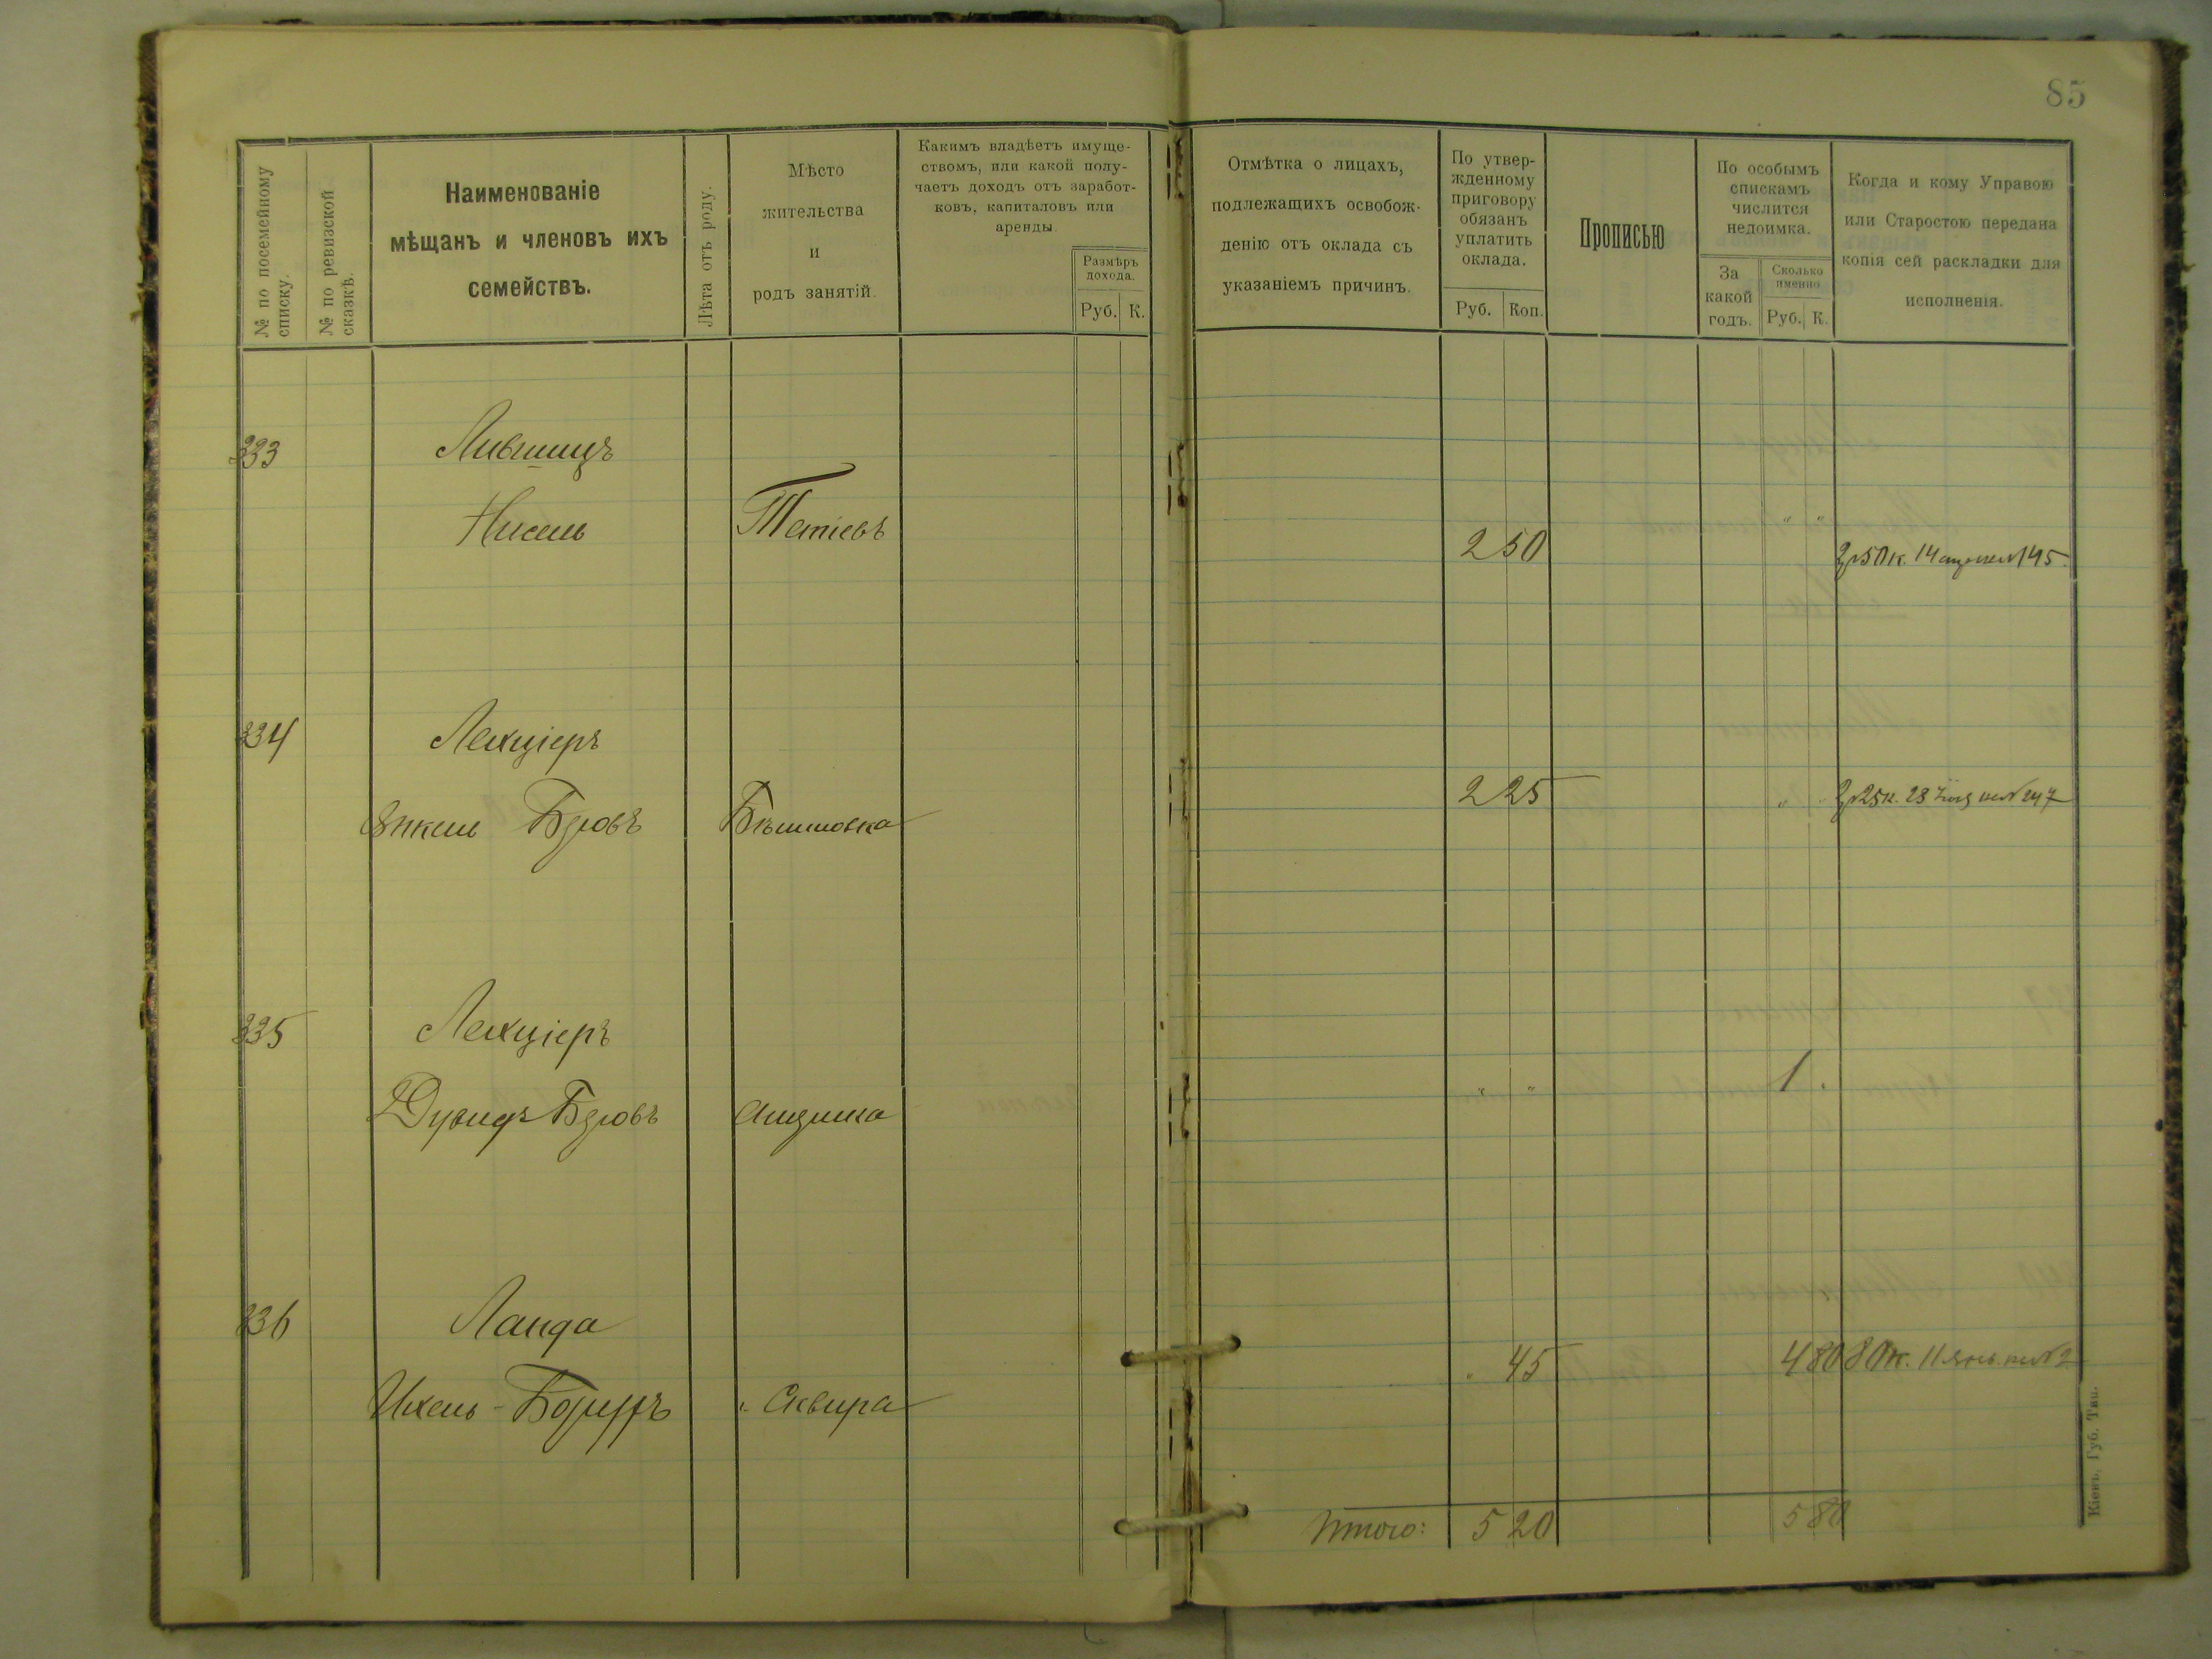 85
№ по посемейному списку.
№ по ревизской сказкѣ.
Наименованіе
мѣщанъ и членовъ ихъ
семействъ.
Лѣта отъ роду.
Мѣсто
жительства
и
родъ занятій.
Какимъ владѣетъ имуще-
ствомъ, или какой полу-
чаетъ доходъ отъ заработ-
ковъ, капиталовъ или
аренды.
Размѣръ
дохода.
Руб. К.
Отмѣтка о лицахъ,
подлежащихъ освобож-
денію отъ оклада съ
указаніемъ причинъ.
По утвер-
жденному
приговору
обязанъ
уплатить
оклада.
Руб. Коп.
Прописью
По особымъ
спискамъ
числится
недоимка.
За
какой
годъ.
Сколько
именно
Руб. К.
Когда и кому Управою
или Старостою передана
копія сей раскладки для
исполненія.
333 Лившицъ
Нисель Тетіевъ 2 50 " " 2р50к. 14 145.
334 Лехціеръ
Янкель Бровъ 2 25 " " 2р25к. 23 247
335 Лехціеръ
Дувидъ Бровъ " " 1 "
336 Ланда
Ихель-Борухъ " Сквира " 45 4 80 80к. 11 янв. 2
Итого: 5 20 5 80
Кіевъ, Губ. Тип.